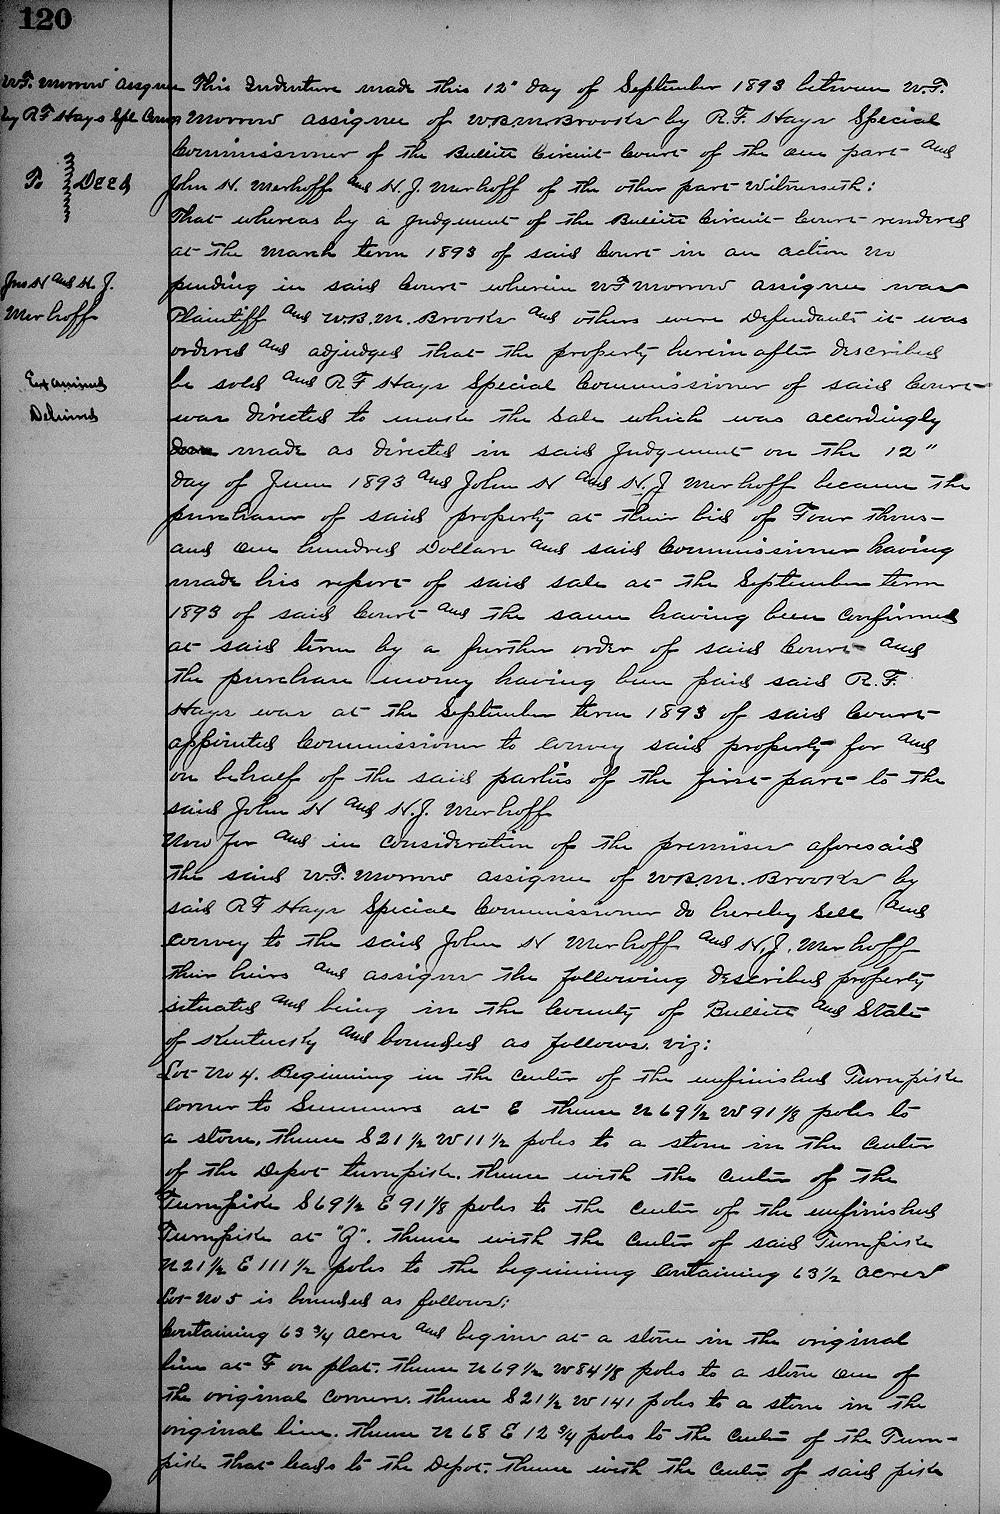 120
W.F. Morrow assgnee
by R F Hays Spl Comr
To Deed
Jno H and H. J.
Merhoff
Examined
Delivered
This Indenture made this 12" day of September 1893 between W.F.
Morrow assignee of W.B.M. Brooks by R.F. Hays Special
Commissioner of the Bullitt Circuit Court of the one part and
John H. Merhoff and H. J. Merhoff of the other part Witnesseth:
That whereas by a judgement of the Bullitt Circuit Court rendered
at the March term 1893 of said Court in an action No
pending in said Court wherein W F Morrow assignee was
Plaintiff and W.B.M. Brooks and others were Defendants it was
ordered and adjudged that the property herein after described
be sold and R F Hays Special Commissioner of said Court
was directed to make the sale which was accordingly
made as directed in said Judgement on the 12"
day of June 1893 and John H and H. J Merhoff became the
purchaser of said property at their bid of Four thous-
and one hundred Dollars and said Commissioner having
made his report of said sale at the September term
1893 of said Court and the same having been confirmed
at said term by a further order of said Court and
the purchase money having been paid said R.F.
Hays was at the September term 1893 of said Court
appointed Commissioner to convey said property for and
on behalf of the said parties of the first part to the
said John H and H.J. Merhoff
Now for and in consideration of the premises aforesaid
the said W.F. Morrow assignee of W.B.M. Brooks by
said R F Hays Special Commissioner do hereby sell and
convey to the said John H Merhoff and H.J. Merhoff
their heirs and assigns the following described property
situated and being in the County of Bullitt and State
of Kentucky and bounded as follows. viz:
Lot No 4. Beginning in the center of the unfinished Turnpike
corner to Summers at E thence N 69 1/2 W 91 1/8 poles to
a stone. thence S 21 1/2 W 11 1/2 poles to a stone in the center
of the Depot turnpike. thence with the center of the
Turnpike S 69 1/2 E 91 1/8 poles to the center of the unfinished
Turnpike at "G". thence with the center of said Turnpike
N 21 1/2 E 111 1/2 poles to the beginning containing 63 1/2 acres
Lot No 5 is bounded as follows:
Containing 63 3/4 acres and begins at a stone in the original
line at F on plat. thence N 69 1/2 W 84 1/8 poles to a stone one of
the original corners. thence S 21 1/2 W 141 poles to a stone in the
original line. thence N 68 E 12 3/4 poles to the center of the Turn-
pike that leads to the Depot. thence with the center of said pike